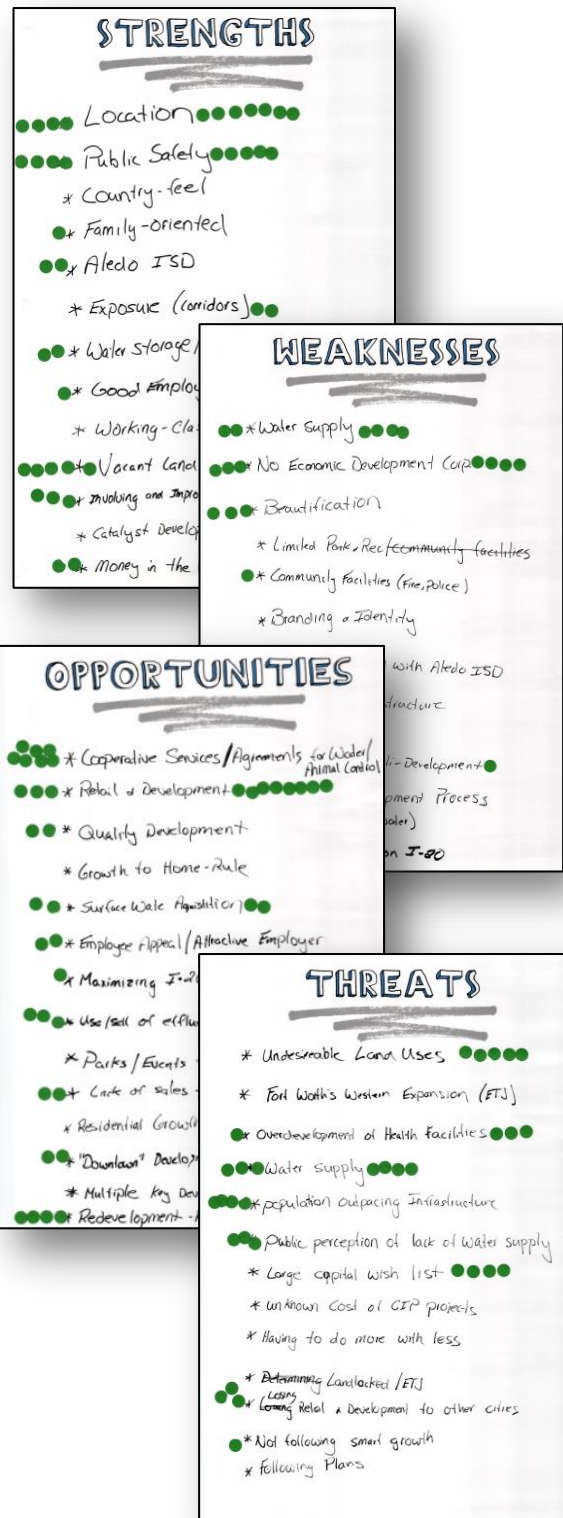 STRENGTHS
Location
Public Safety
* Country-feel
* Family-oriented
* Aledo ISD
* Exposure (corridors)
* Water Storage/
* Good Employ
* Working-Cla
* Vacant Land
* Involving and Impro
* Catalyst Develop
* Money in the
WEAKNESSES
* Water Supply
* No Economic Development Corp.
* Beautification
* Limited Park & Rec/community facilities
* Community Facilities (Fire, Police)
* Branding & Identity
with Aledo ISD
tructure
i-Development
pment Process
on I-20
OPPORTUNITIES
* Cooperative Services/Agreements for Water/
Animal Control
* Retail & Development
* Quality Development
* Growth to Home-Rule
* Surface Wate Aquisition
* Employee Appeal/Attractive Employer
* Maximizing I-20
* Use/sell of efflu
* Parks/Events
* Lack of sales
* Residential Growth
* "Downtown" Develop
* Multiple Key Dev
* Redevelopment -
THREATS
* Undesireable Land Uses
* Fort Worth's Western Expansion (ETJ)
* Overdevelopment of Health Facilities
* Water Supply
* population outpacing Infrastructure
* Public perception of lack of water supply
* Large capital wish list
* unknown Cost of CIP projects
* Having to do more with less
* Determining Landlocked /ETJ
* Losing Retail & Development to other cities
* Not following smart growth
* Following Plans